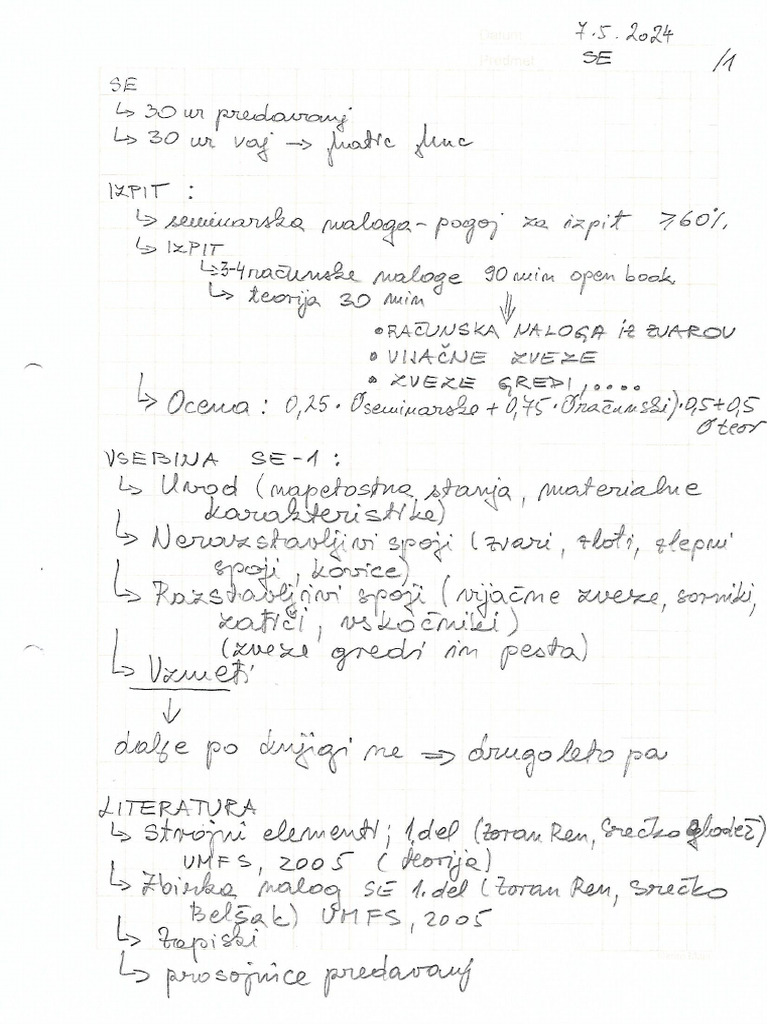 Datum 7.5.2024
Predmet SE /1
SE
↳ 30 ur predavanj
↳ 30 ur vaj → Matic
IZPIT :
↳ seminarska naloga - pogoj za izpit ≥60%
↳ IZPIT
↳ 3-4 računske naloge 90 min open book
↳ teorija 30 min
⇓
• RAČUNSKA NALOGA iz ZVAROV
• VIJAČNE ZVEZE
• ZVEZE GREDI,....
↳ Ocena : 0,25 · Oseminarske + 0,75 · Oračunski) · 0,5 + 0,5
Oteor
VSEBINA SE-1 :
↳ Uvod (napetostna stanja, materialne
karakteristike)
↳ Nerazstavljivi spoji (zvari, zloti, zlepni
spoji, kovice)
↳ Razstavljivi spoji (vijačne zveze, sorniki,
zatiči, vskočniki)
(zveze gredi in pesta)
↳ Vzmeti
↓
dalje po knjigi ne ⇒ drugo leto pa
LITERATURA
↳ Strojni elementi; 1.del (Zoran Ren, Srečko Glodež)
UMFS, 2005 (teorija)
↳ Zbirka nalog SE 1.del (Zoran Ren, Srečko
Belšak) UMFS, 2005
↳ Zapiski
↳ prosojnice predavanj